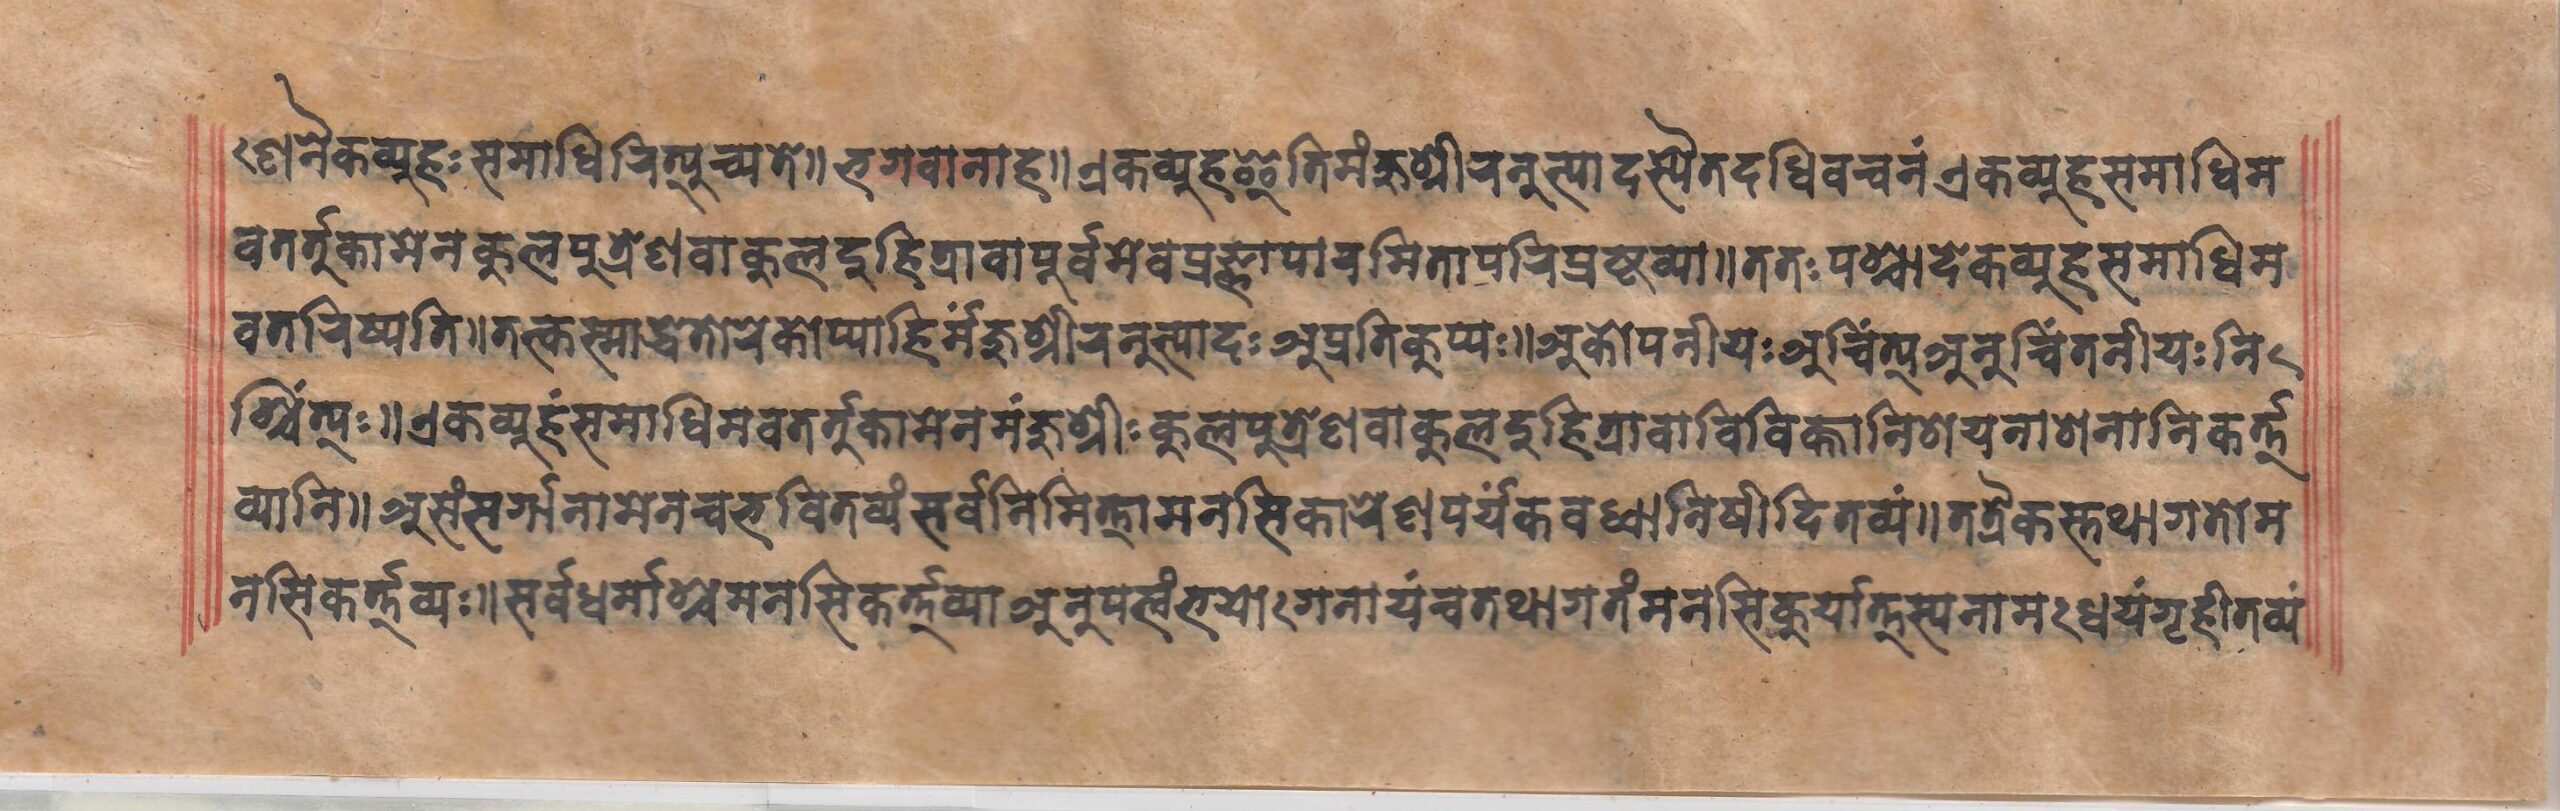 ःणनैकव्यूहः समाधिरित्युच्यते॥ भगवानाह॥ एकव्यूह इतिमंजुश्रीरनुत्पादस्यैतदधिवचनं एकव्यूहसमाधिम
वतर्तुकामेनकुलपुत्रेणवाकुलदुहित्रावापूर्वमेवप्रज्ञापारमितापरिप्रष्टव्या॥ततः पश्चादेकव्यूहसमाधिम
वतरिष्यति॥तत्कस्माद्धेतोरेकोप्याहिर्मंजुश्रीरनुत्पादः अप्रतिकुप्यः॥अकोपनीयः अचिंत्य्अनुचिंतनीयः निः
श्चिंत्यः॥एकव्यूहंसमाधिमवतर्तुकामेनमंजुश्रीः कुलपुत्रेणवाकुलदुहित्रावाविविक्तानिशयनाशनानिकर्त्त
व्यानि॥असंसर्गानामेनचभवितव्यंसर्वनिमित्तामनसिकारेणपर्यंकवध्वानिषीदितव्यं॥तत्रैकस्तथागतोम
नसिकर्त्तव्यः॥सर्वधर्माश्चमनसिकर्त्तव्याअनुपलंभयोःगनायंचतथागतंमनसिकुर्यात्तस्यनामःधेयंगृहीतव्यं